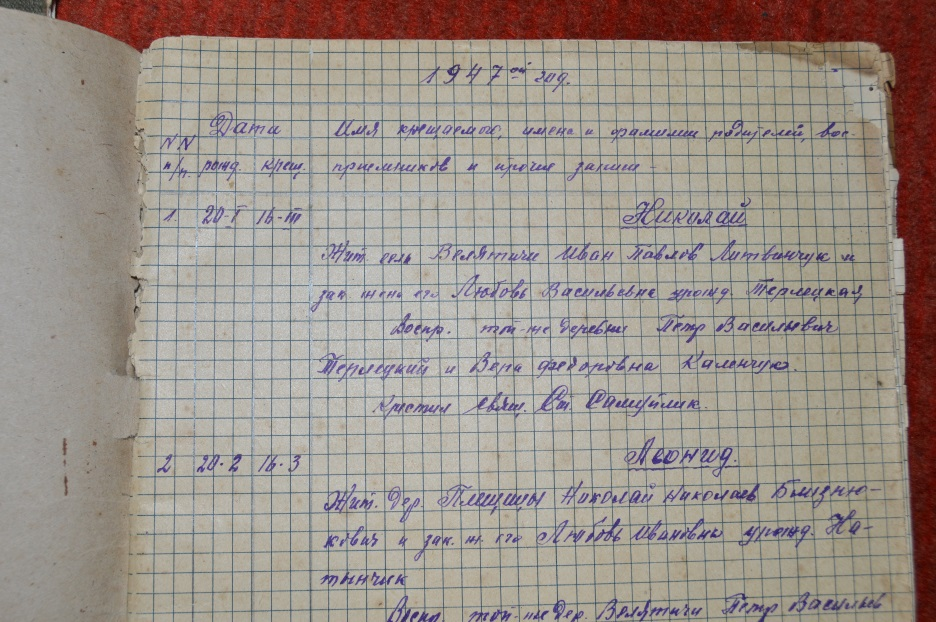 1947ой год.
Дата Имя крещаемого, имена и фамилии родителей, вос-
NN
п/п. рожд. крещ. приемников и прочие записи
1. 20-I 16-III Николай
Жит. села Велятичи Иван Павлов Литвинчук и
зак. жена его Любовь Васильевна урожд. Терлецкая,
Воспр. той-же деревни Петр Васильевич
Терлецкий и Вера Федоровна Каленчук.
Крестил Свящ. Ст. Самуйлик.
2 20-2 16-3 Леонид.
Жит. Дер. Плещицы Николай Николаев Близню-
кович и зак. ж. его Любовь Ивановна урожд. На-
тынчик
Воспр. той-же Дер. Велятичи Петр Васильев